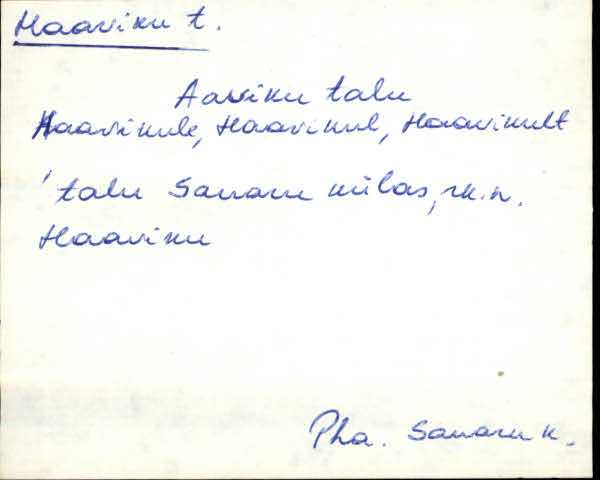 Haaviku t.
Aaviku talu
Haavikule, Haavikul, Haavikult
'talu Sauaru külas, rk.n.
Haaviku
Pha. Sauaru k.